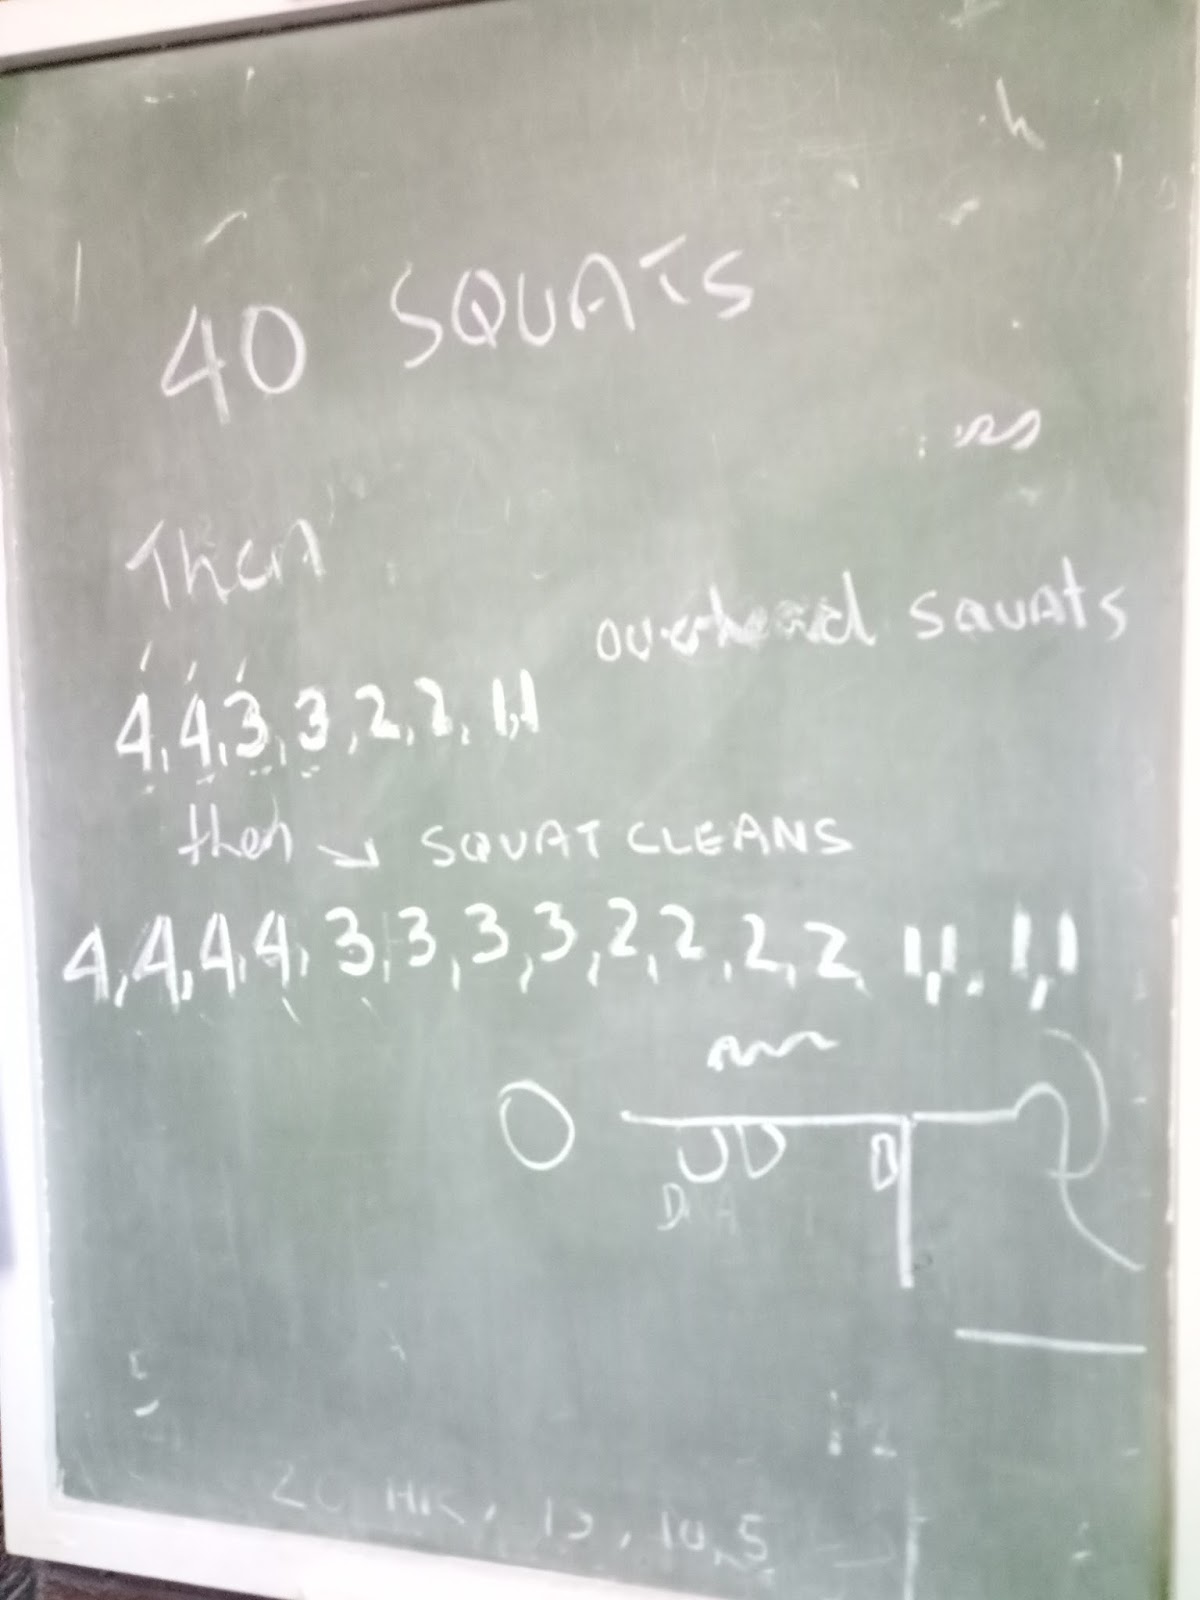 40 SQUATS
Then
overhead squats
4,4,3,3,2,2,1,1
then → SQUAT CLEANS
4,4,4,4,3,3,3,3,2,2,2,2 1,1,1,1
10,5